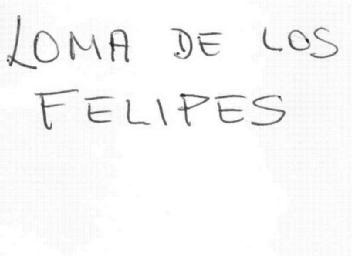 LOMA DE LOS
FELIPES